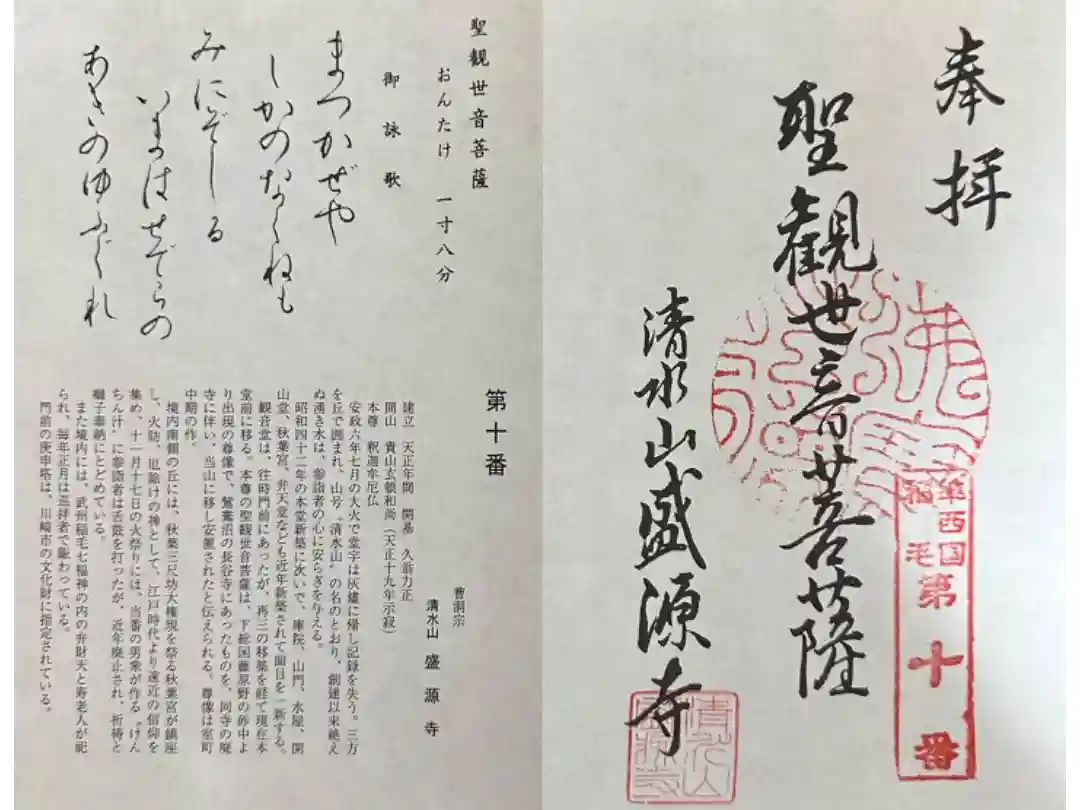 奉拝
聖観世音菩薩
清水山盛源寺
準西国
稲毛
第十番
聖観世音菩薩
おんたけ 一寸八分
御詠歌
まつかぜや
しかのなくねも
みにぞしる
いまはせでらの
あきのゆふぐれ
第十番
曹洞宗
清水山 盛源寺
建立 天正年間 開基 久翁力正
開山 貴山玄領和尚(天正十九年示寂)
本尊 釈迦牟尼仏
安政六年七月の大火で堂宇は灰燼に帰し記録を失う。三方
を丘で囲まれ、山号〝清水山〟の名のとおり、創建以来絶え
ぬ湧き水は、参詣者の心に安らぎを与える。
昭和四十二年の本堂新築に次いで、庫院、山門、水屋、開
山堂、秋葉宮、弁天堂なども近年新築されて面目を一新する。
観音堂は、往時門前にあったが、再三の移築を経て現在本
堂前に移る。本尊の聖観世音菩薩は、下総国藤原野の砂中よ
り出現の尊像で、鷺鷥沼の長谷寺にあったものを、同寺の廃
寺に伴い、当山に移し安置されたと伝えられる。尊像は室町
中期の作。
境内南側の丘には、秋葉三尺坊大権現を祭る秋葉宮が鎮座
し、火防、厄除けの神として、江戸時代より遠近の信仰を
集め、十一月十七日の火祭りには、当番の男衆が作る〝けん
ちん汁〟に参詣者は舌鼓を打ったが、近年廃止され、祈祷と
囃子奉納にとどめている。
また境内には、武州稲毛七福神の内の弁財天と寿老人が祀
られ、毎年正月は巡拝者で賑わっている。
門前の庚申塔は、川崎市の文化財に指定されている。